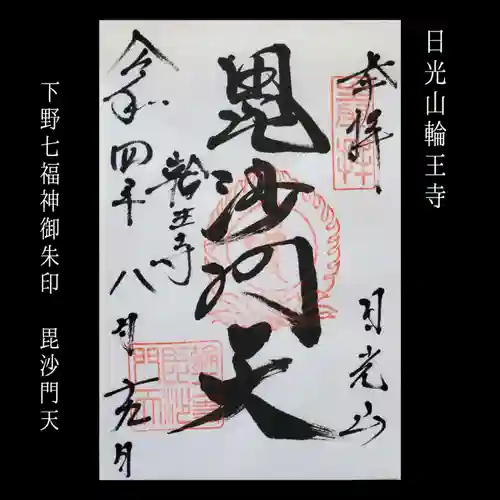 日光山輪王寺
奉拝
日光山
毘沙門天
輪王寺
令和四年八月十九日
下野七福神御朱印　毘沙門天